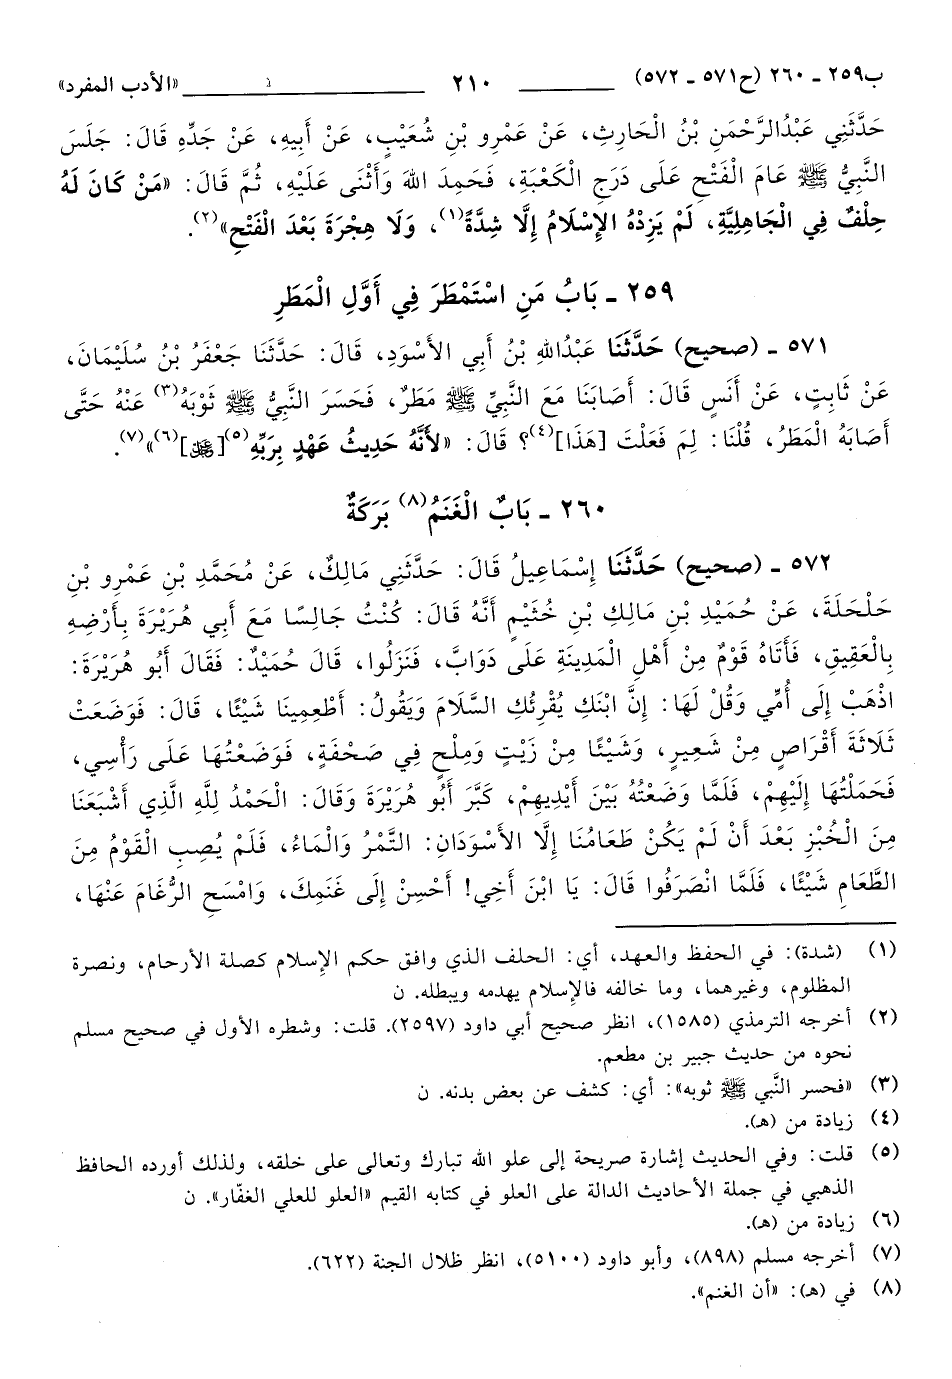 ب٢٥٩ ـ ٢٦٠ (ح٥٧١ ـ ٥٧٢) ٢١٠ «الأدب المفرد»
حَدَّثَنِي عَبْدُالرَّحْمَنِ بْنُ الْحَارِثِ، عَنْ عَمْرِو بْنِ شُعَيْبٍ، عَنْ أَبِيهِ، عَنْ جَدِّهِ قَالَ: جَلَسَ
النَّبِيُّ ﷺ عَامَ الْفَتْحِ عَلَى دَرَجِ الْكَعْبَةِ، فَحَمِدَ اللهَ وَأَثْنَى عَلَيْهِ، ثُمَّ قَالَ: «مَنْ كَانَ لَهُ
حِلْفٌ فِي الْجَاهِلِيَّةِ، لَمْ يَزِدْهُ الإِسْلَامُ إِلَّا شِدَّةً(١)، وَلَا هِجْرَةَ بَعْدَ الْفَتْحِ»(٢).
٢٥٩ ـ بَابُ مَنِ اسْتَمْطَرَ فِي أَوَّلِ الْمَطَرِ
٥٧١ ـ (صحيح) حَدَّثَنَا عَبْدُاللهِ بْنُ أَبِي الأَسْوَدِ، قَالَ: حَدَّثَنَا جَعْفَرُ بْنُ سُلَيْمَانَ،
عَنْ ثَابِتٍ، عَنْ أَنَسٍ قَالَ: أَصَابَنَا مَعَ النَّبِيِّ ﷺ مَطَرٌ، فَحَسَرَ النَّبِيُّ ﷺ ثَوْبَهُ(٣) عَنْهُ حَتَّى
أَصَابَهُ الْمَطَرُ، قُلْنَا: لِمَ فَعَلْتَ [هَذَا](٤)؟ قَالَ: «لأَنَّهُ حَدِيثُ عَهْدٍ بِرَبِّهِ(٥)[ﷻ](٦)»(٧).
٢٦٠ ـ بَابٌ الْغَنَمُ(٨) بَرَكَةٌ
٥٧٢ ـ (صحيح) حَدَّثَنَا إِسْمَاعِيلُ قَالَ: حَدَّثَنِي مَالِكٌ، عَنْ مُحَمَّدِ بْنِ عَمْرِو بْنِ
حَلْحَلَةَ، عَنْ حُمَيْدِ بْنِ مَالِكِ بْنِ خُثَيْمٍ أَنَّهُ قَالَ: كُنْتُ جَالِسًا مَعَ أَبِي هُرَيْرَةَ بِأَرْضِهِ
بِالْعَقِيقِ، فَأَتَاهُ قَوْمٌ مِنْ أَهْلِ الْمَدِينَةِ عَلَى دَوَابَّ، فَنَزَلُوا، قَالَ حُمَيْدٌ: فَقَالَ أَبُو هُرَيْرَةَ:
اذْهَبْ إِلَى أُمِّي وَقُلْ لَهَا: إِنَّ ابْنَكِ يُقْرِئُكِ السَّلَامَ وَيَقُولُ: أَطْعِمِينَا شَيْئًا، قَالَ: فَوَضَعَتْ
ثَلَاثَةَ أَقْرَاصٍ مِنْ شَعِيرٍ، وَشَيْئًا مِنْ زَيْتٍ وَمِلْحٍ فِي صَحْفَةٍ، فَوَضَعْتُهَا عَلَى رَأْسِي،
فَحَمَلْتُهَا إِلَيْهِمْ، فَلَمَّا وَضَعْتُهُ بَيْنَ أَيْدِيهِمْ، كَبَّرَ أَبُو هُرَيْرَةَ وَقَالَ: الْحَمْدُ لِلَّهِ الَّذِي أَشْبَعَنَا
مِنَ الْخُبْزِ بَعْدَ أَنْ لَمْ يَكُنْ طَعَامُنَا إِلَّا الأَسْوَدَانِ: التَّمْرُ وَالْمَاءُ، فَلَمْ يُصِبِ الْقَوْمُ مِنَ
الطَّعَامِ شَيْئًا، فَلَمَّا انْصَرَفُوا قَالَ: يَا ابْنَ أَخِي! أَحْسِنْ إِلَى غَنَمِكَ، وَامْسَحِ الرُّغَامَ عَنْهَا،
(١) (شدة): في الحفظ والعهد، أي: الحلف الذي وافق حكم الإسلام كصلة الأرحام، ونصرة
المظلوم، وغيرهما، وما خالفه فالإسلام يهدمه ويبطله. ن
(٢) أخرجه الترمذي (١٥٨٥)، انظر صحيح أبي داود (٢٥٩٧). قلت: وشطره الأول في صحيح مسلم
نحوه من حديث جبير بن مطعم.
(٣) «فحسر النَّبي ﷺ ثوبه»: أي: كشف عن بعض بدنه. ن
(٤) زيادة من (هـ).
(٥) قلت: وفي الحديث إشارة صريحة إلى علو الله تبارك وتعالى على خلقه، ولذلك أورده الحافظ
الذهبي في جملة الأحاديث الدالة على العلو في كتابه القيم «العلو للعلي الغفّار». ن
(٦) زيادة من (هـ).
(٧) أخرجه مسلم (٨٩٨)، وأبو داود (٥١٠٠)، انظر ظلال الجنة (٦٢٢).
(٨) في (هـ): «أن الغنم».